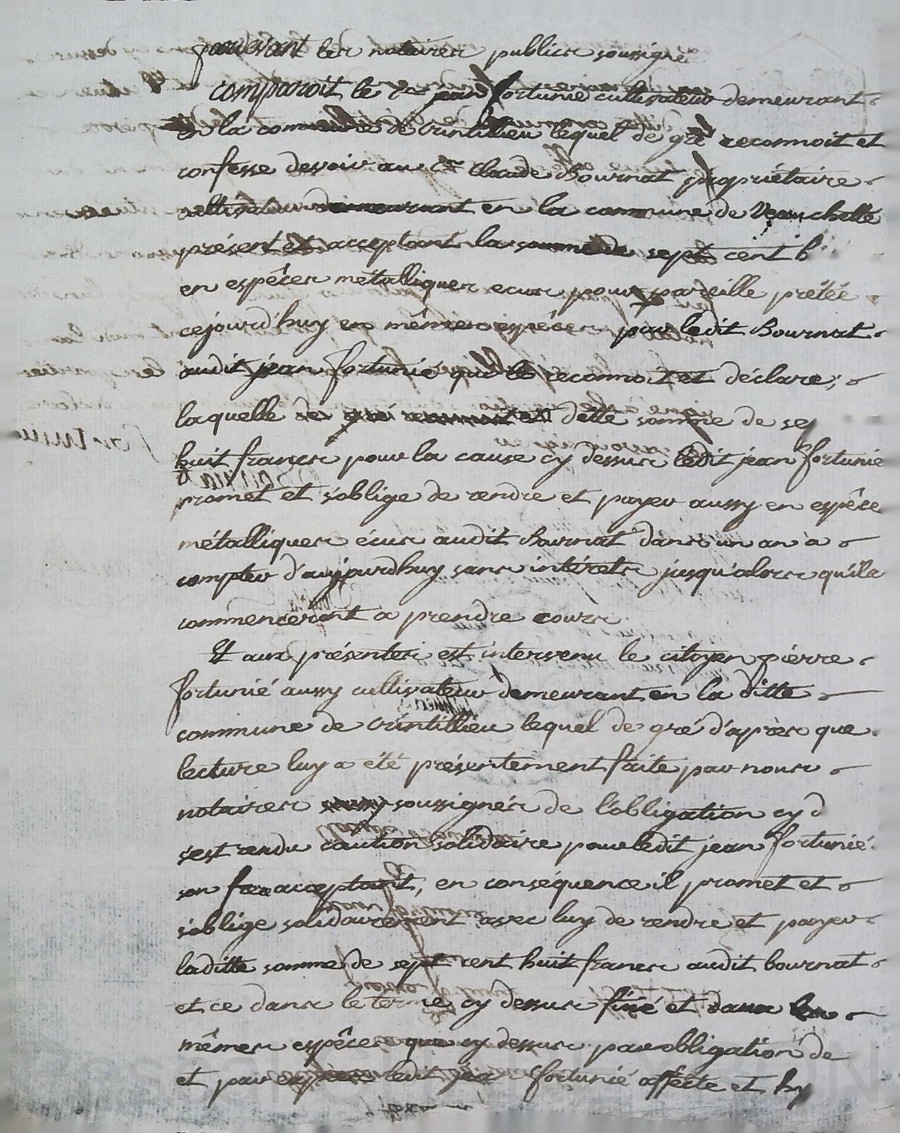 pardevant les notaires publics soussignés
comparoit le Cen jean fortunié cultivateur demeurant
en la commune de Vrintillieu lequel de gré reconnoit et
confesse devoir au Cen Claude Bournat propriétaire
cultivateur demeurant en la commune de Veauchelle
présent et acceptant la somme de sept cent h
en espêces métalliques ecus pour pareille prétée
cejourd'huy en mêmes espêces par ledit Bournat
audit jean fortunié que le reconnoit et déclare;
laquelle ditte somme de sep
huit francs pour la cause cy dessus ledit jean fortunié
promet et s'oblige de rendre et payer aussy en espêce
métalliques ecus audit Bournat dans un an a
compter d'aujourdhuy sans intérets jusqu'alors qu'ils
commenceront a prendre cours
Et aux présentes est intervenu le citoyen pierre
fortunié aussy cultivateur demeurant en la ditte
commune de Vrintillieu lequel de gré d'après que
lecture luy a été présentement faite par nous
notaires soussignés de l'obligation cy d
s'est rendu caution solidaire pour ledit jean fortunié
son acceptant, en conséquence il promet et
s'oblige solidairement avec luy de rendre et payer
laditte somme de sept cent huit francs audit bournat
et ce dans le terme cy dessus fixé et dans les
mêmes espêces que cy dessus par obligation de
et par ledit fortunié affecte et hy